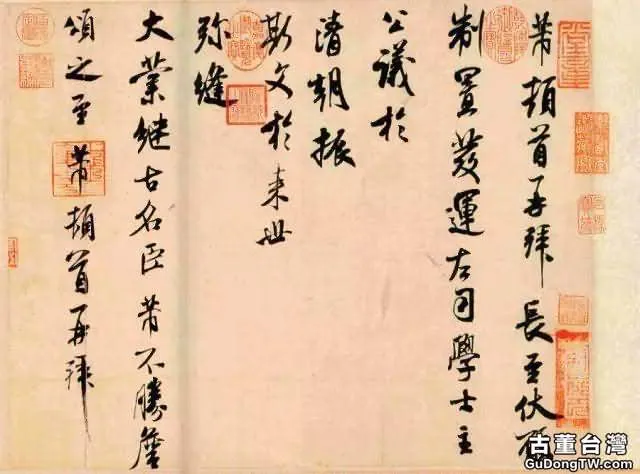 芾頓首再拜長至伏願
制置發運左司學士主
公議於
清朝振
斯文於來世
弥縫
大業繼古名臣芾不勝詹
頌之至芾頓首再拜
古董台灣
GuDongTW.com